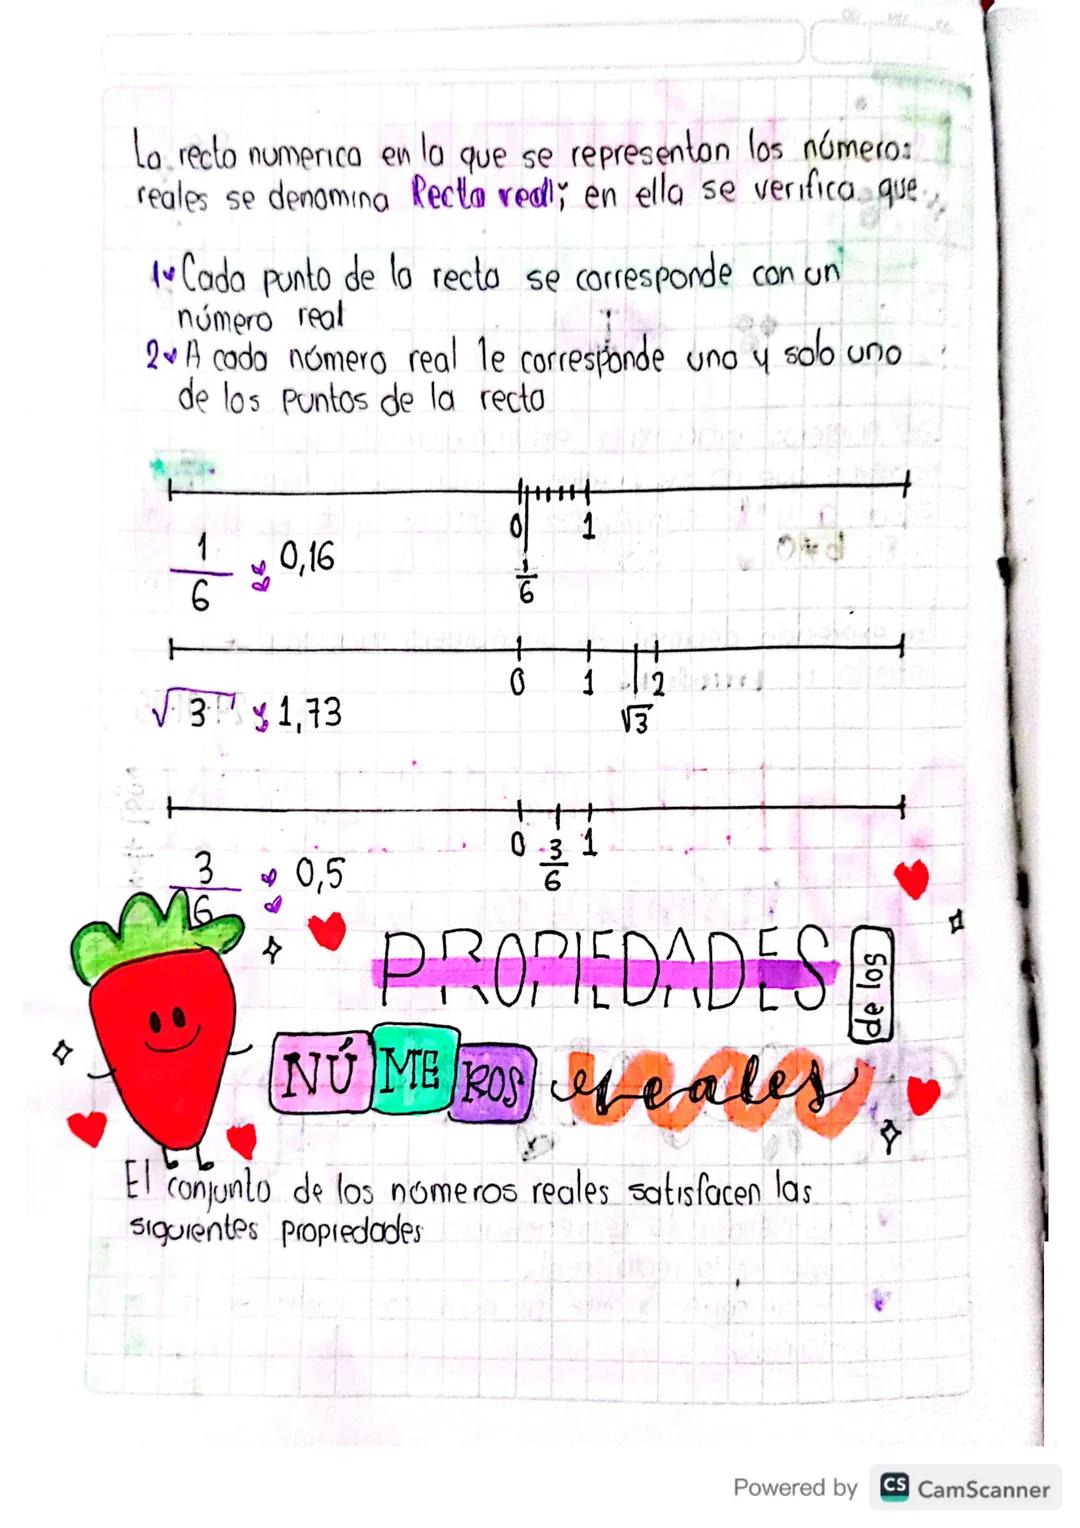 La recta numerica en la que se representan los números
reales se denomina Recta real; en ella se verifica que
1 Cada punto de la recta se corresponde con un
número real
2 A cada número real le corresponde uno y solo uno
de los puntos de la recta
0 1
1/6 0,16
1/6
0 1 2
√3 1,73 √3
0 3/6 1
3/6 0,5
PROPIEDADES de los
NÚMEROS reales
El conjunto de los números reales satisfacen las
siguientes propiedades
Powered by CS CamScanner